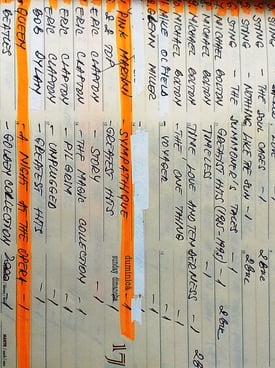 STING - THE SOUL CAGES - 1
STING - NOTHING LIKE THE SUN - 1
STING - THE SUMMONER'S TALES - 1
MICHAEL BOLTON - GREATEST HITS (1985-1995) - 1
MICHAEL BOLTON - TIMELESS - 1
MICHAEL BOLTON - TIME, LOVE AND TENDERNESS - 1
MICHAEL BOLTON - THE ONE THING - 1
MIKE OLDFIELD - VOYAGER - 1
GLENN MILLER
PINK MARTINI - SYMPATHIQUE - 1
ZZ TOP - GREATEST HITS
ERIC CLAPTON - STORY - 1
ERIC CLAPTON - THE MAGIC COLLECTION - 1
ERIC CLAPTON - PILGRIM - 1
ERIC CLAPTON - UNPLUGGED - 1
BOB DYLAN - GREATEST HITS - 1
QUEEN - A NIGHT AT THE OPERA - 1
BEATLES - GOLDEN COLLECTION
duminică
sunday
17